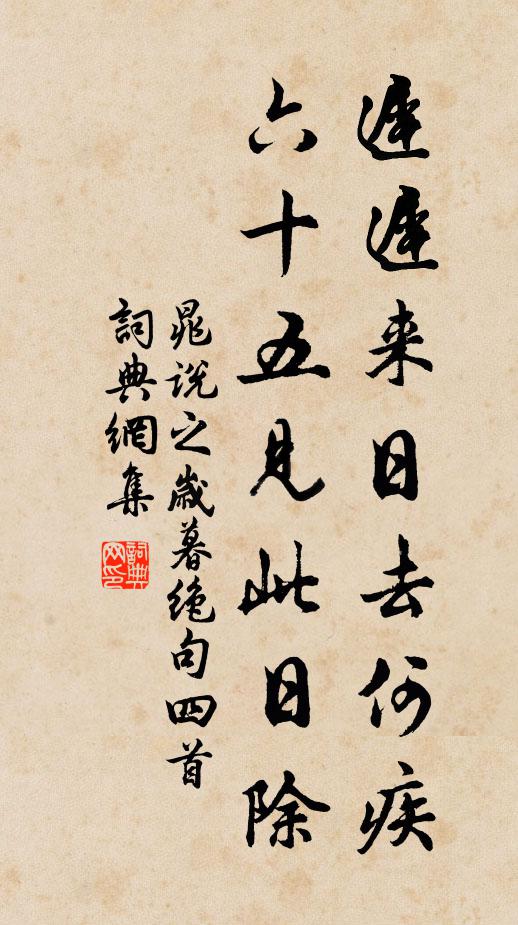 遲遲来日去何疾
六十五見此日除
晁說之歲暮绝句四首
詞典網集
詞典网印